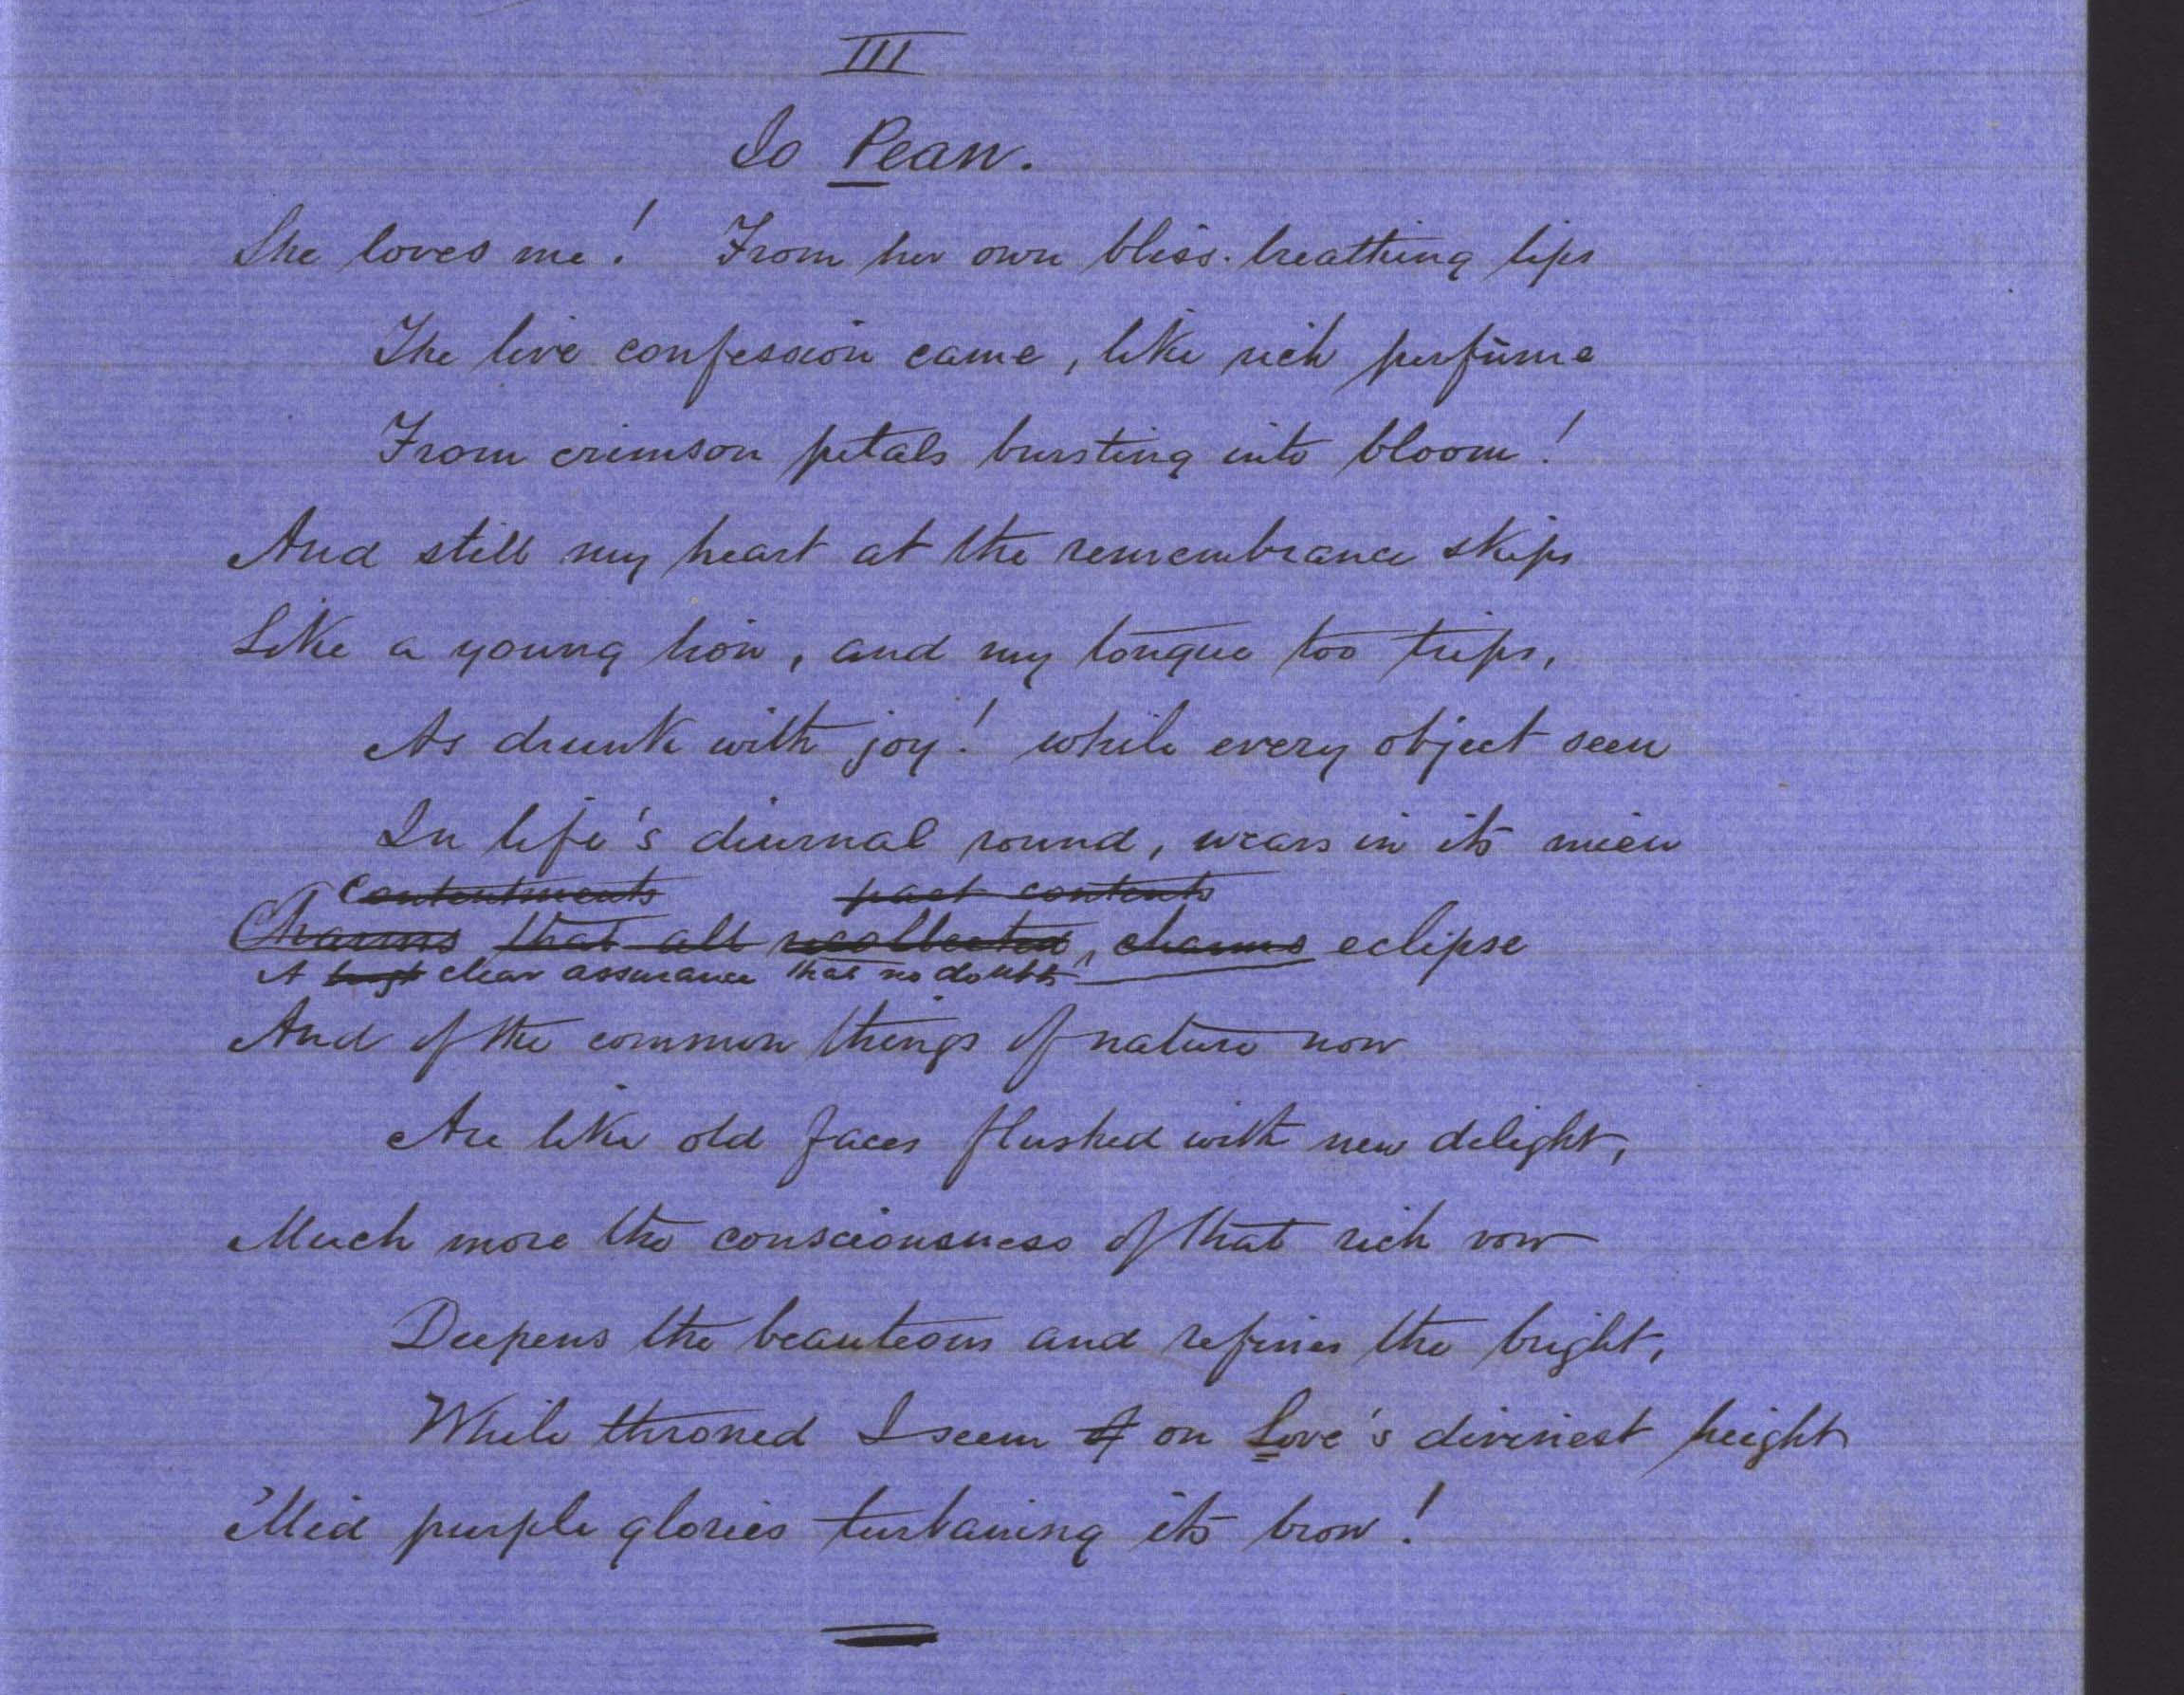 III
Io Pean.
She loves me! From her own bliss-breathing lips
The live confession came, like rich perfume
From crimson petals bursting into bloom!
And still my heart at the remembrance skips
Like a young lion, and my tongue too trips,
As drunk with joy! while every object seen
In life's diurnal round, wears in its mien
Contentments past contents
Charms that all recollected, charms eclipse
A clear assurance that no doubts
And if the common things of nature now
Are like old faces flushed with new delight,
Much more the consciousness of that rich vow
Deepens the beauteous and refines the bright,
While throned I seem on Love's divinest height
'Mid purple glories turbaning its brow!